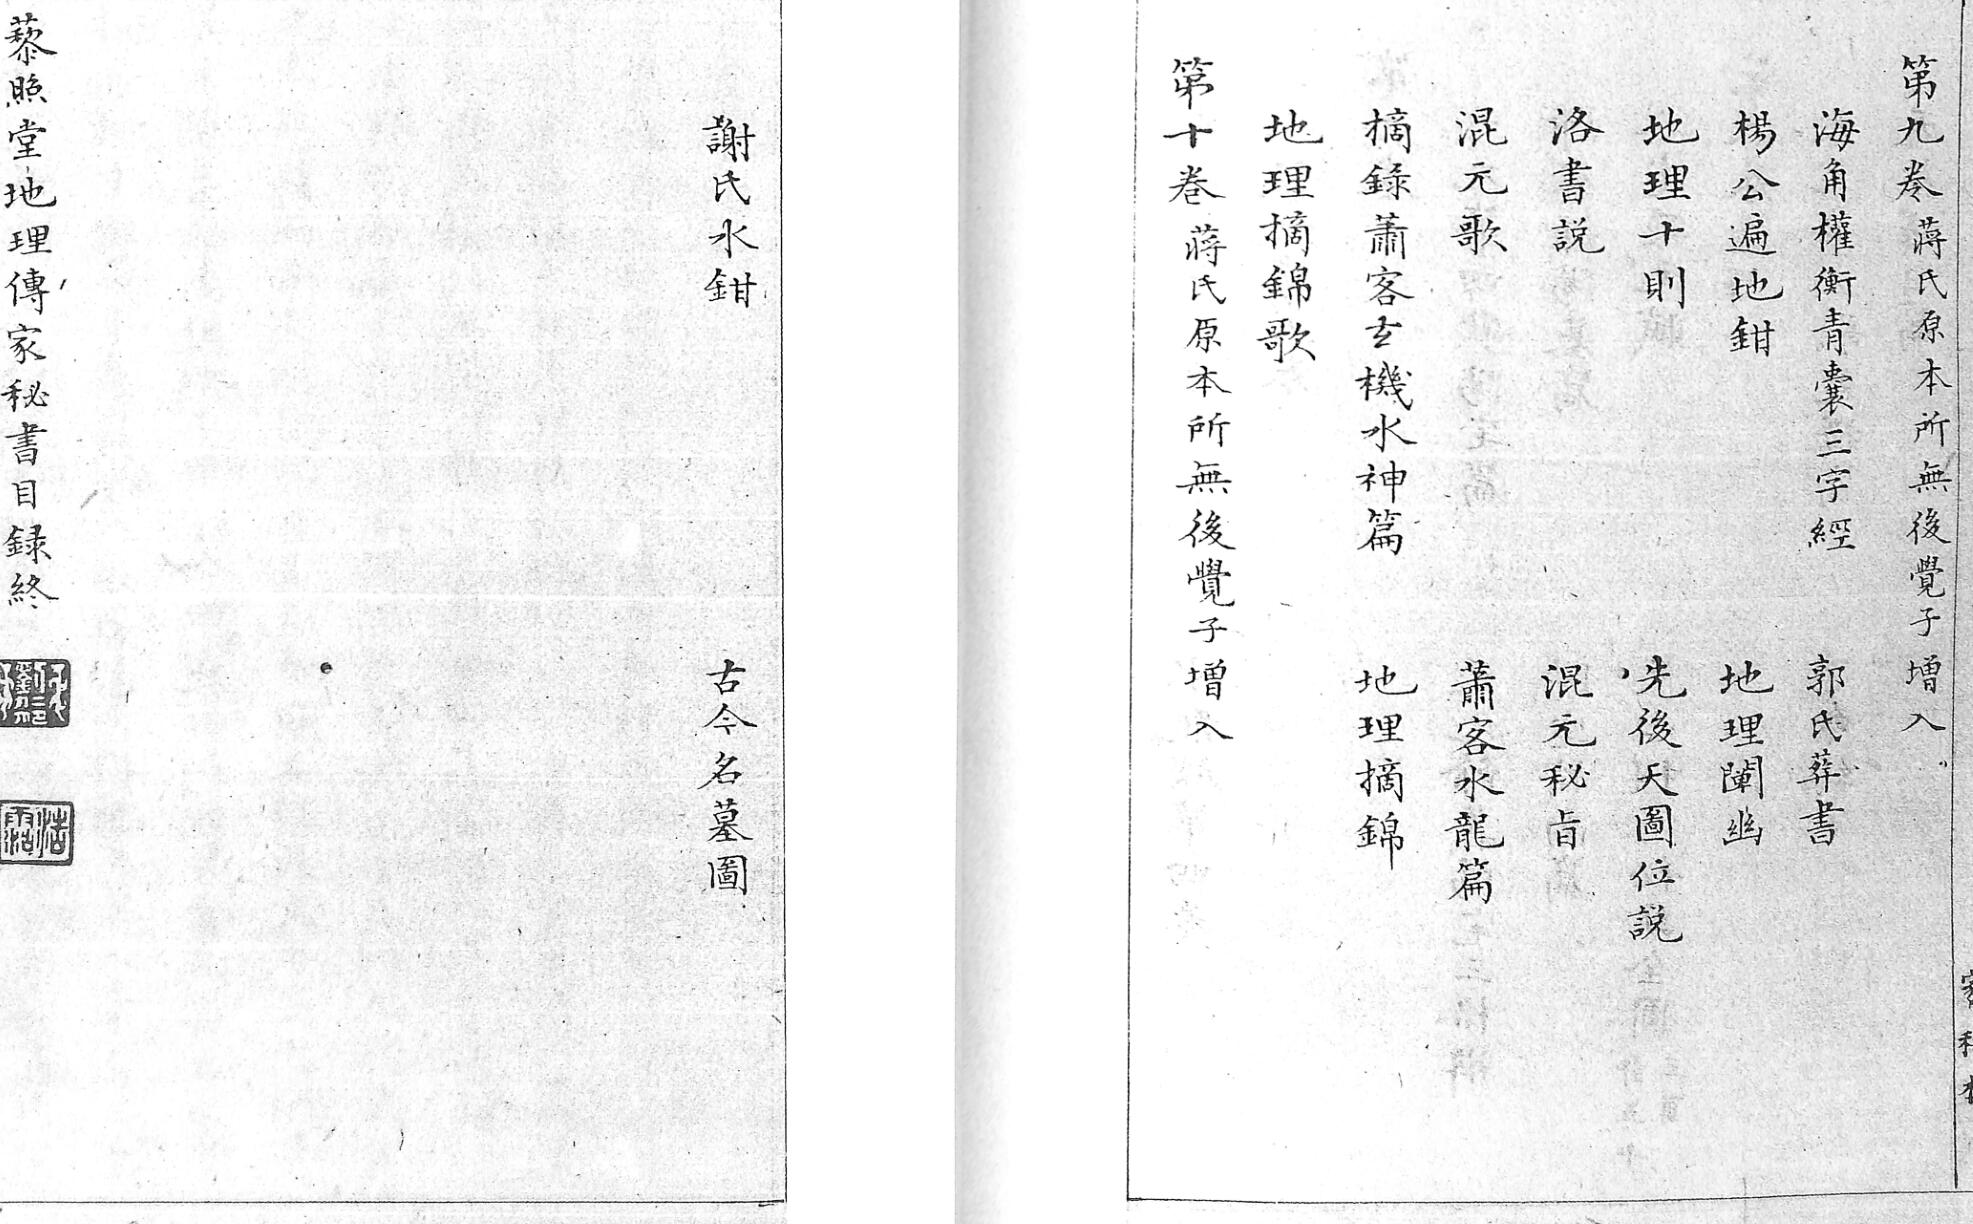 第九卷蔣氏原本所無後覺子增入
海角權衡青囊三字經　郭氏葬書
楊公遍地鉗　地理闡幽
地理十則　先後天圖位說
洛書説　混元秘旨
混元歌　蕭客水龍篇
摘録蕭客玄機水神篇　地理摘錦
地理摘錦歌
第十卷蔣氏原本所無後覺子增入
謝氏水鉗　古今名墓圖
藜照堂地理傳家秘書目録終